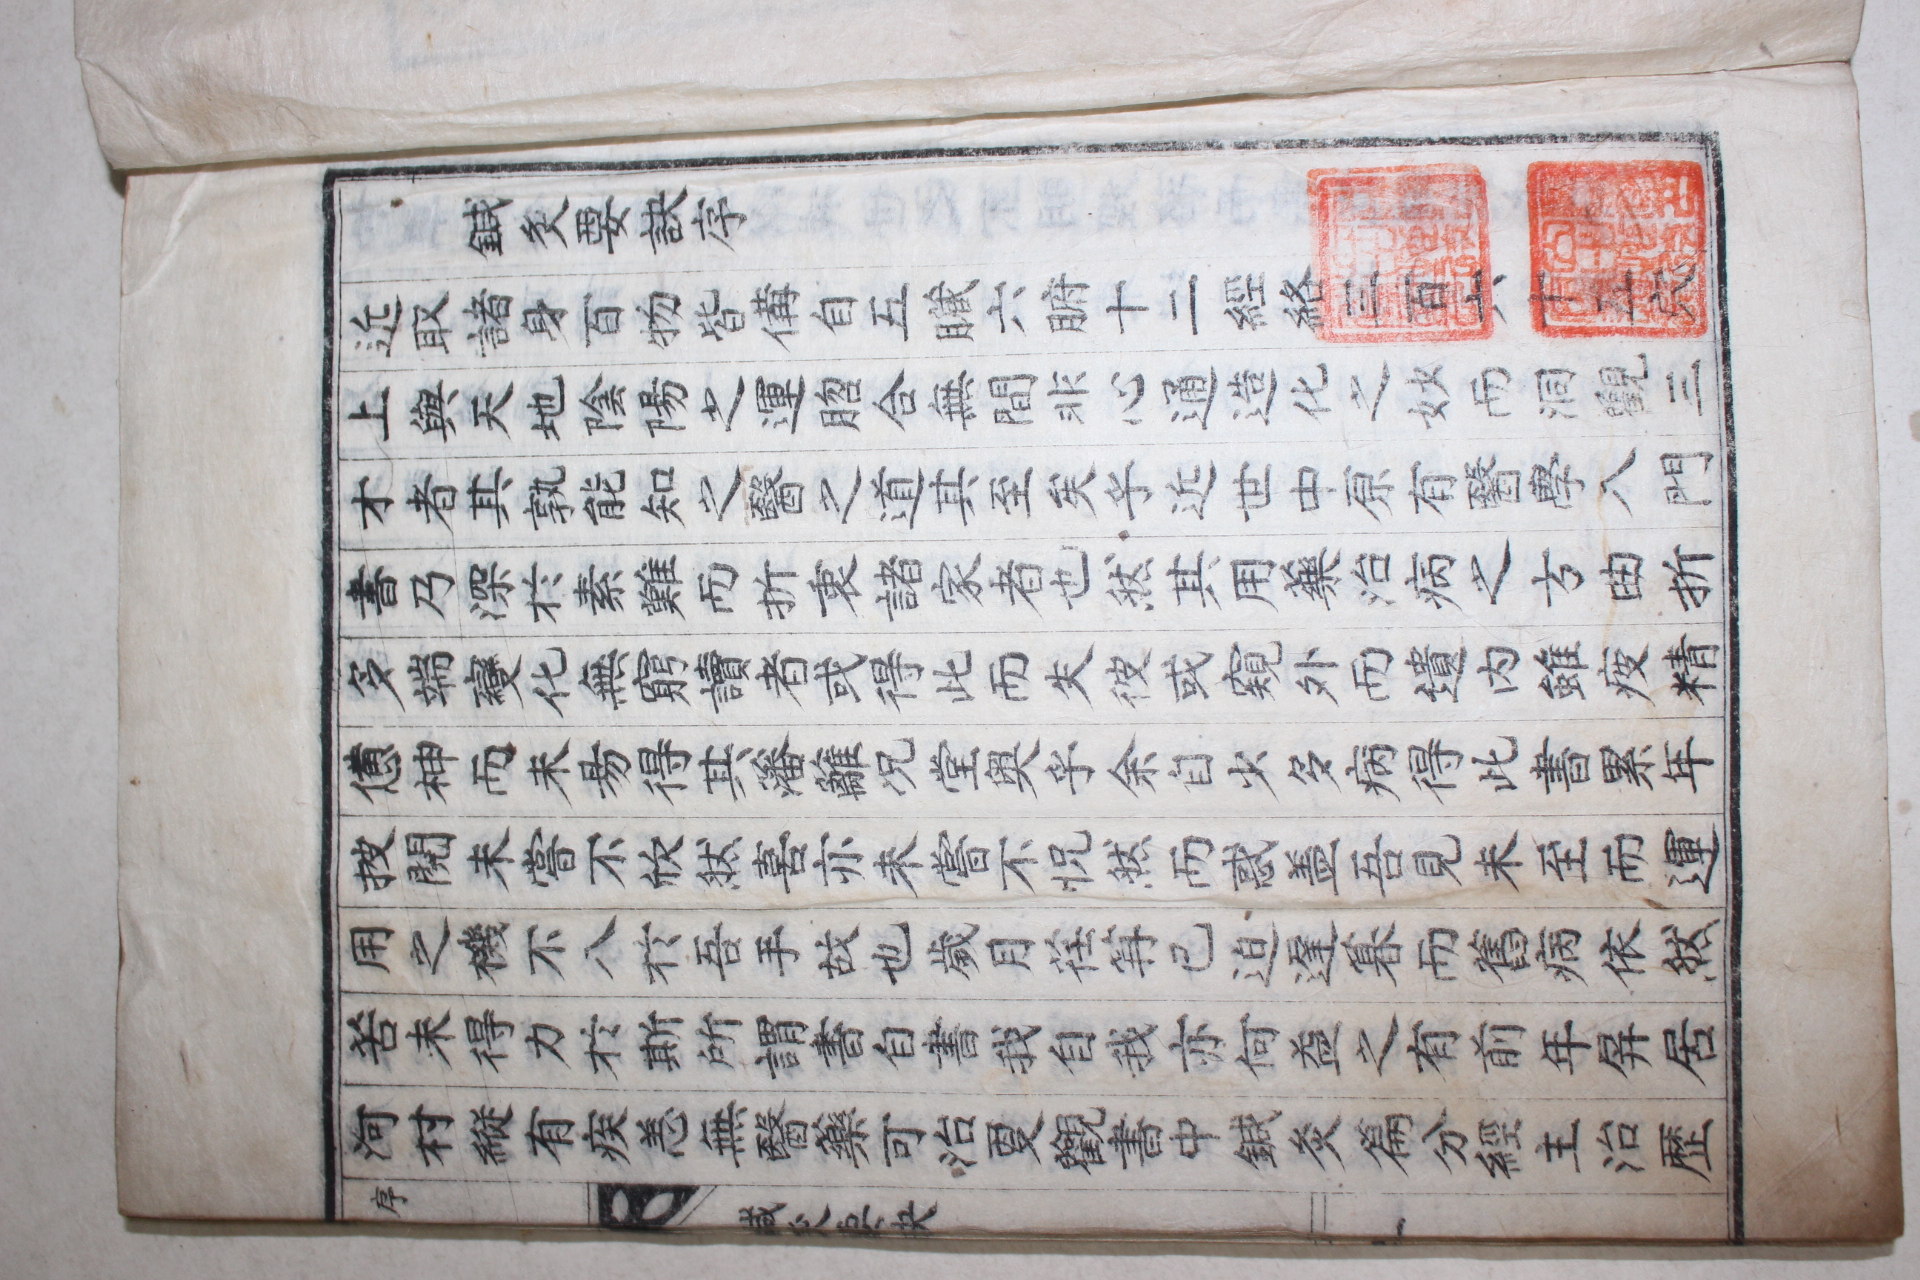 鍼灸要訣序
近取諸身百物皆備自五臟六腑十二經絡三百六十五穴
上與天地陰陽之運脗合無間非心通造化之妙而洞觀三
才者其孰能知之醫之道其至矣乎近世中原有醫學入門
書乃深於素難而折衷諸家者也然其用藥治病之方曲折
多端變化無窮讀者或得此而失彼或窺外而遺內雖疲精
憊神而未易得其藩籬况堂奧乎余自少多病得此書累年
披閱未嘗不欣然喜亦未嘗不怳然而惑盖吾見未至而運
用之機不入於吾手故也歲月荏苒已迫遲暮而舊病依然
苦未得力於斯所謂書自書我自我亦何益之有前年屛居
河村縱有疾恙無醫藥可治更觀書中鍼灸篇分經主治歷
序
鍼灸要訣